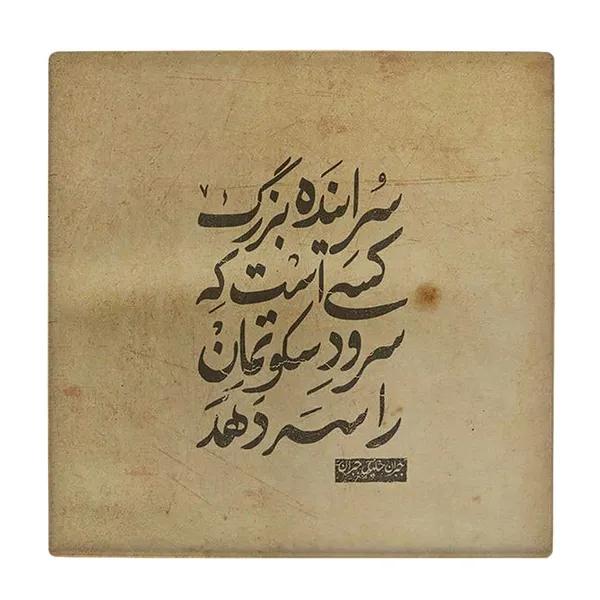 سُراینده بزرگ
کسی است که
سرودِ سکوتمان
را سر دهد
جبران خلیل جبران